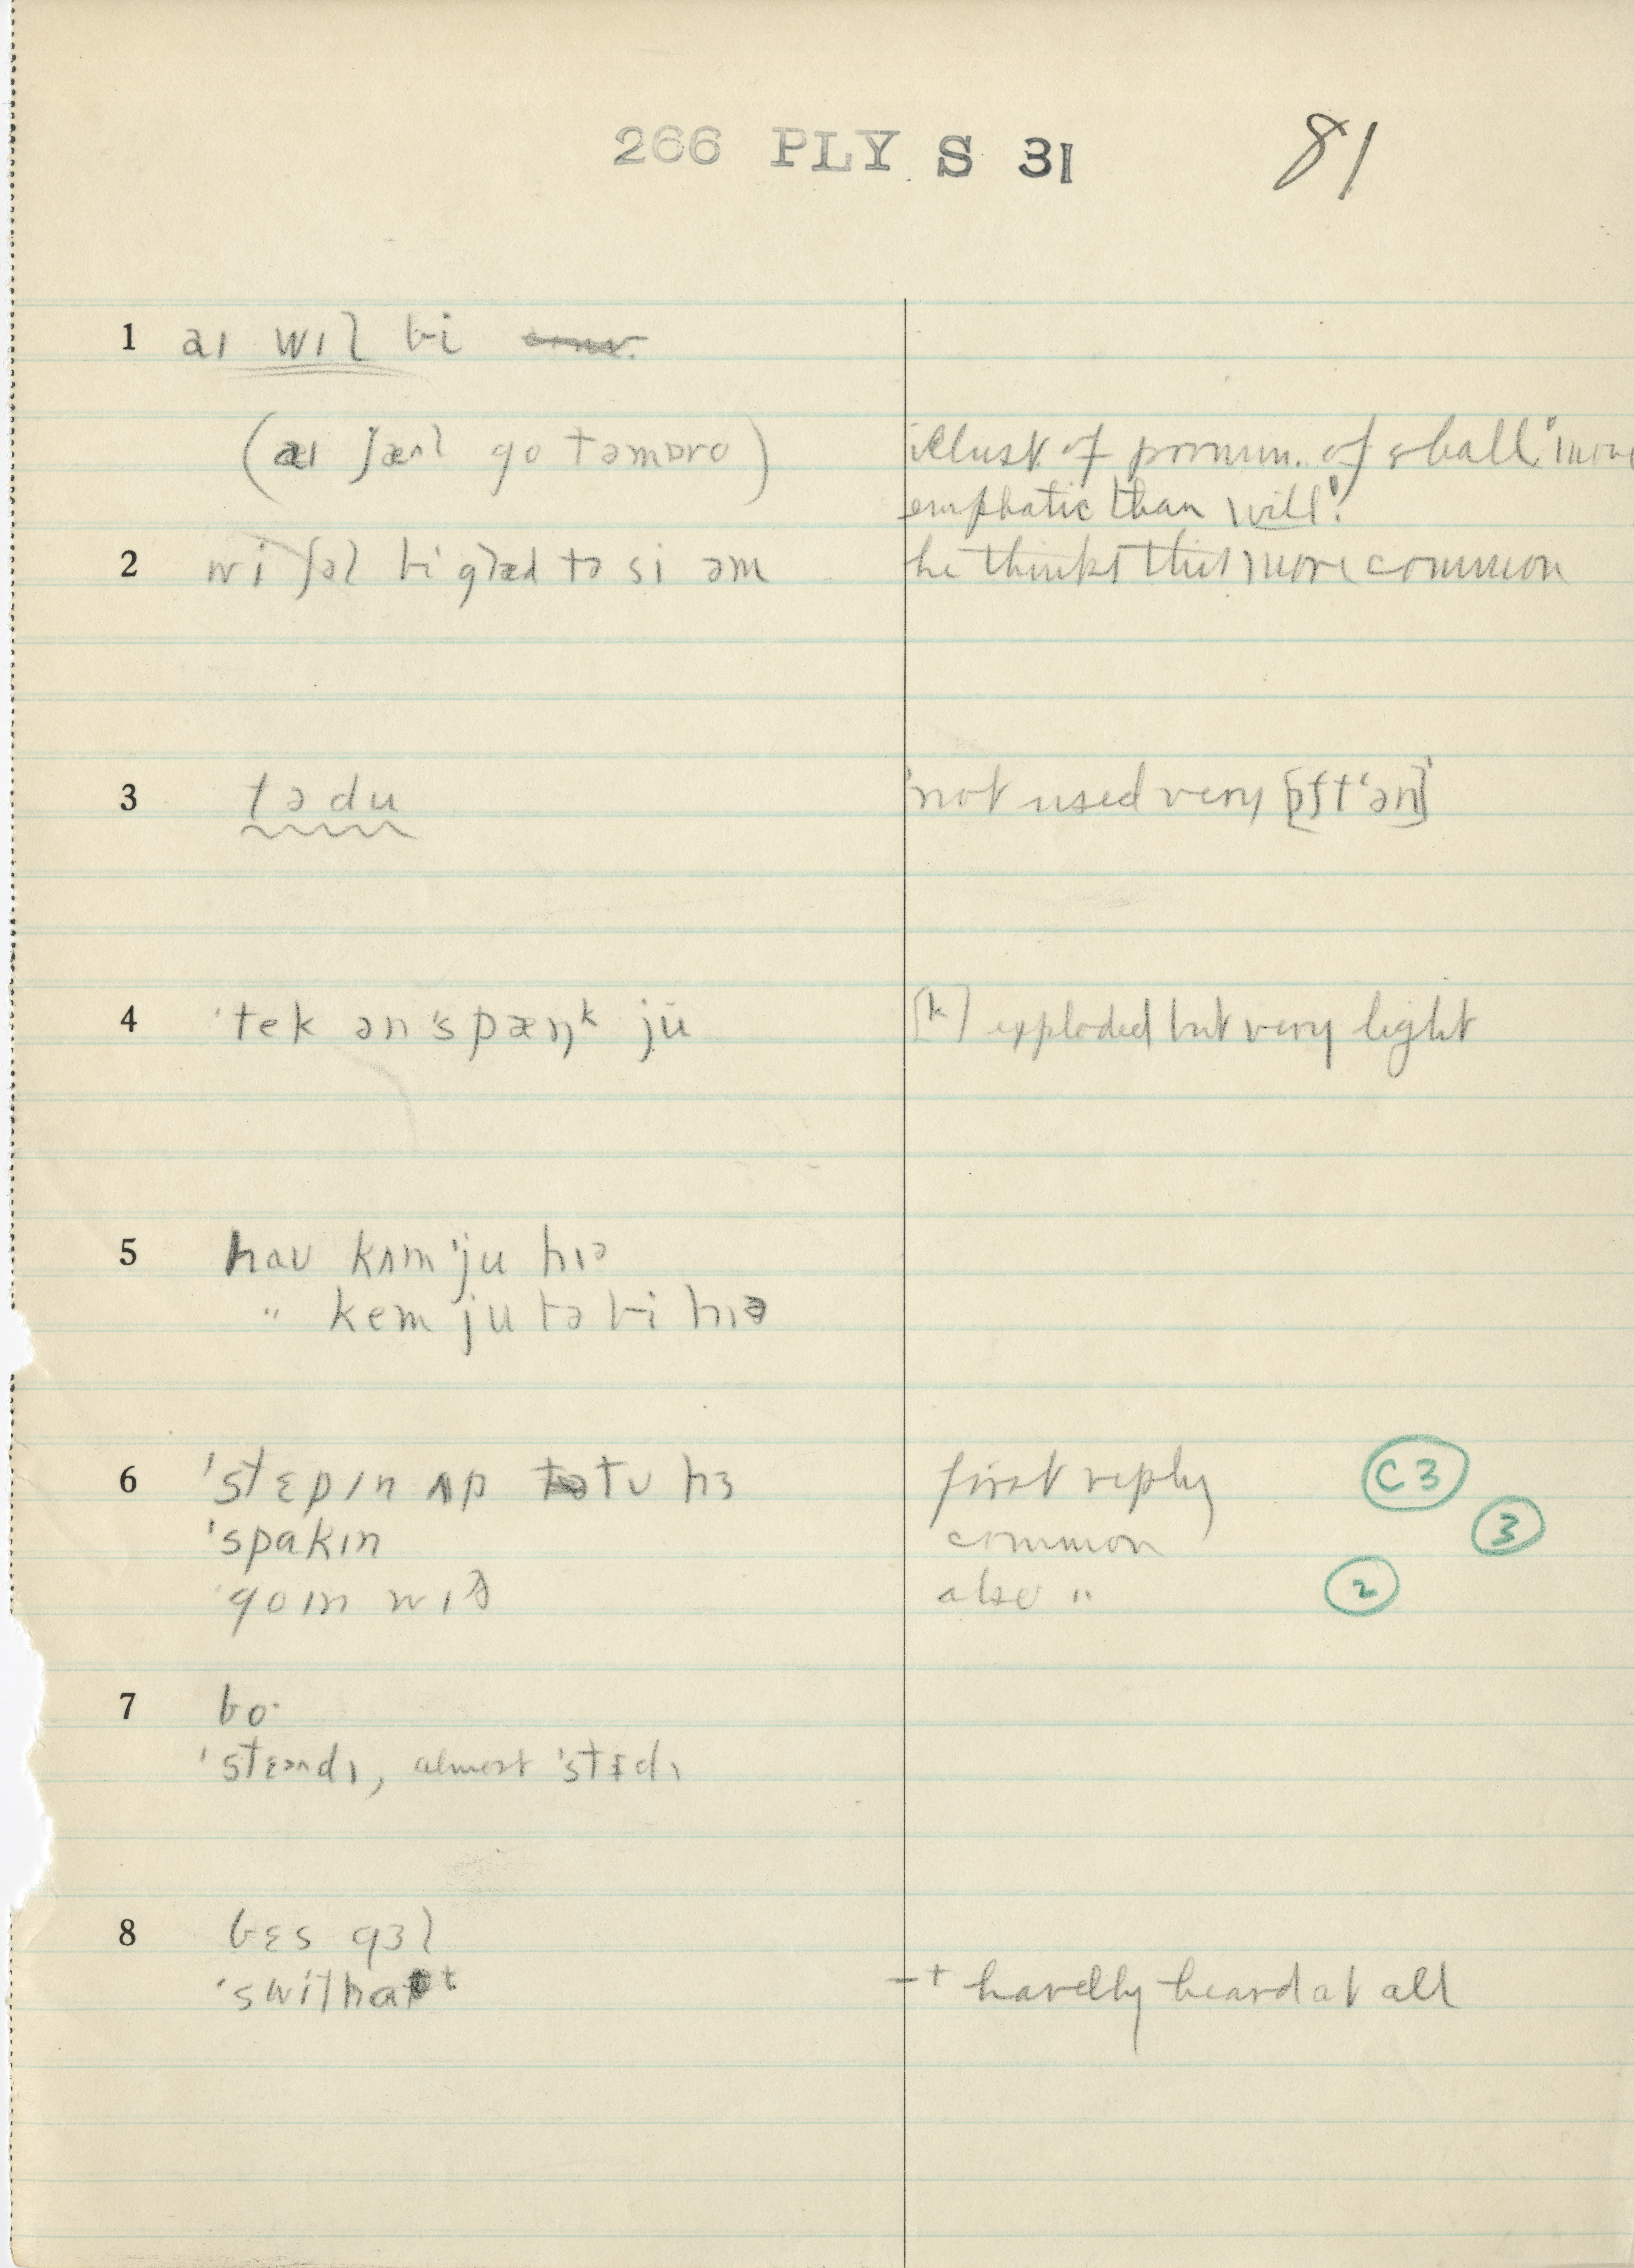 266 PLY S 31 81
1 aɪ wɪl bi
(aɪ ʃæl go təmɒro) illust. of pronun. of shall. 'more
emphatic than will'.
2 wi ʃəl bi glæd tə si əm he thinks this more common
3 tə du 'not used very [ɒft‘ən]'
4 ˈtek ən ˈspæŋᵏ ju [k] exploded but very light
5 haʊ kʌm ˈju hɪᵊ
" kem ju tə bi hɪə
6 ˈstɛpɪn ʌp tʊ hɜ first reply C3
ˈspakɪn common 3
ˈgoɪn wɪð also " 2
7 bo·
ˈstɛᵊdɪ, almost ˈstɛdɪ
8 bɛs gɜl
ˈswithaᵗ -t hardly heard at all